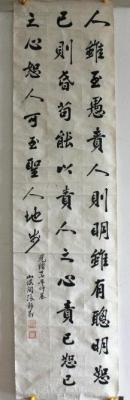 人雖至愚責人則明雖有聰明恕
己則昏苟能以責人之心責己恕己
之心恕人可至聖人地步